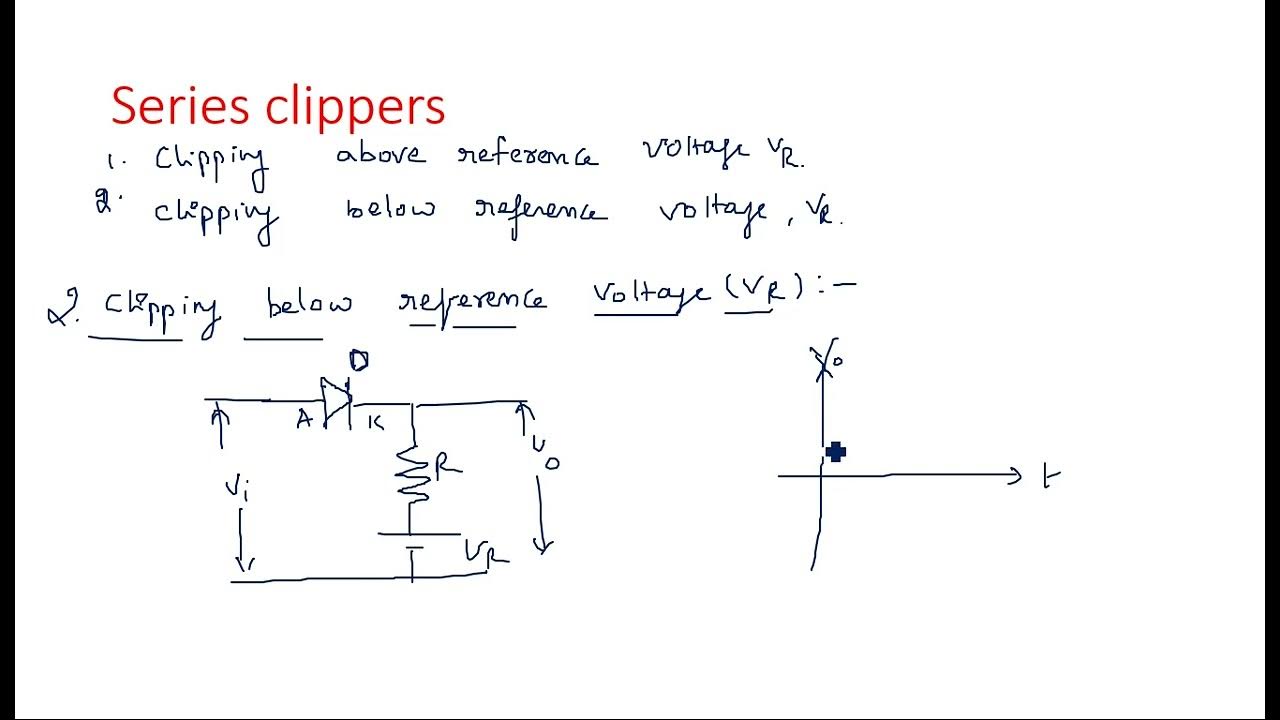 Series clippers
1. Clipping above reference voltage VR.
2. clipping below reference voltage, VR.
2. Clipping below reference voltage (VR) :-
D
A K
Vi
R
VR
Vo
Vo
t